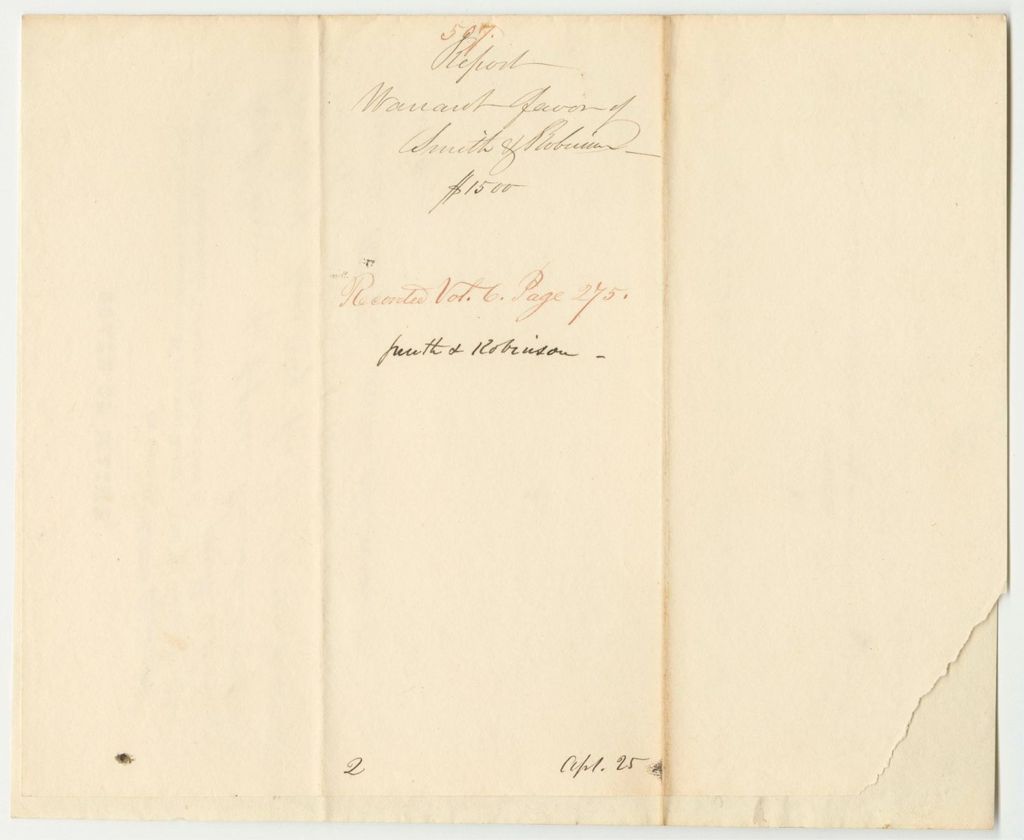 507.
Report
Warrant favor of
Smith & Robinson
$1500
Recorded Vol. 6. Page 275.
Smith & Robinson -
2
Apl. 25